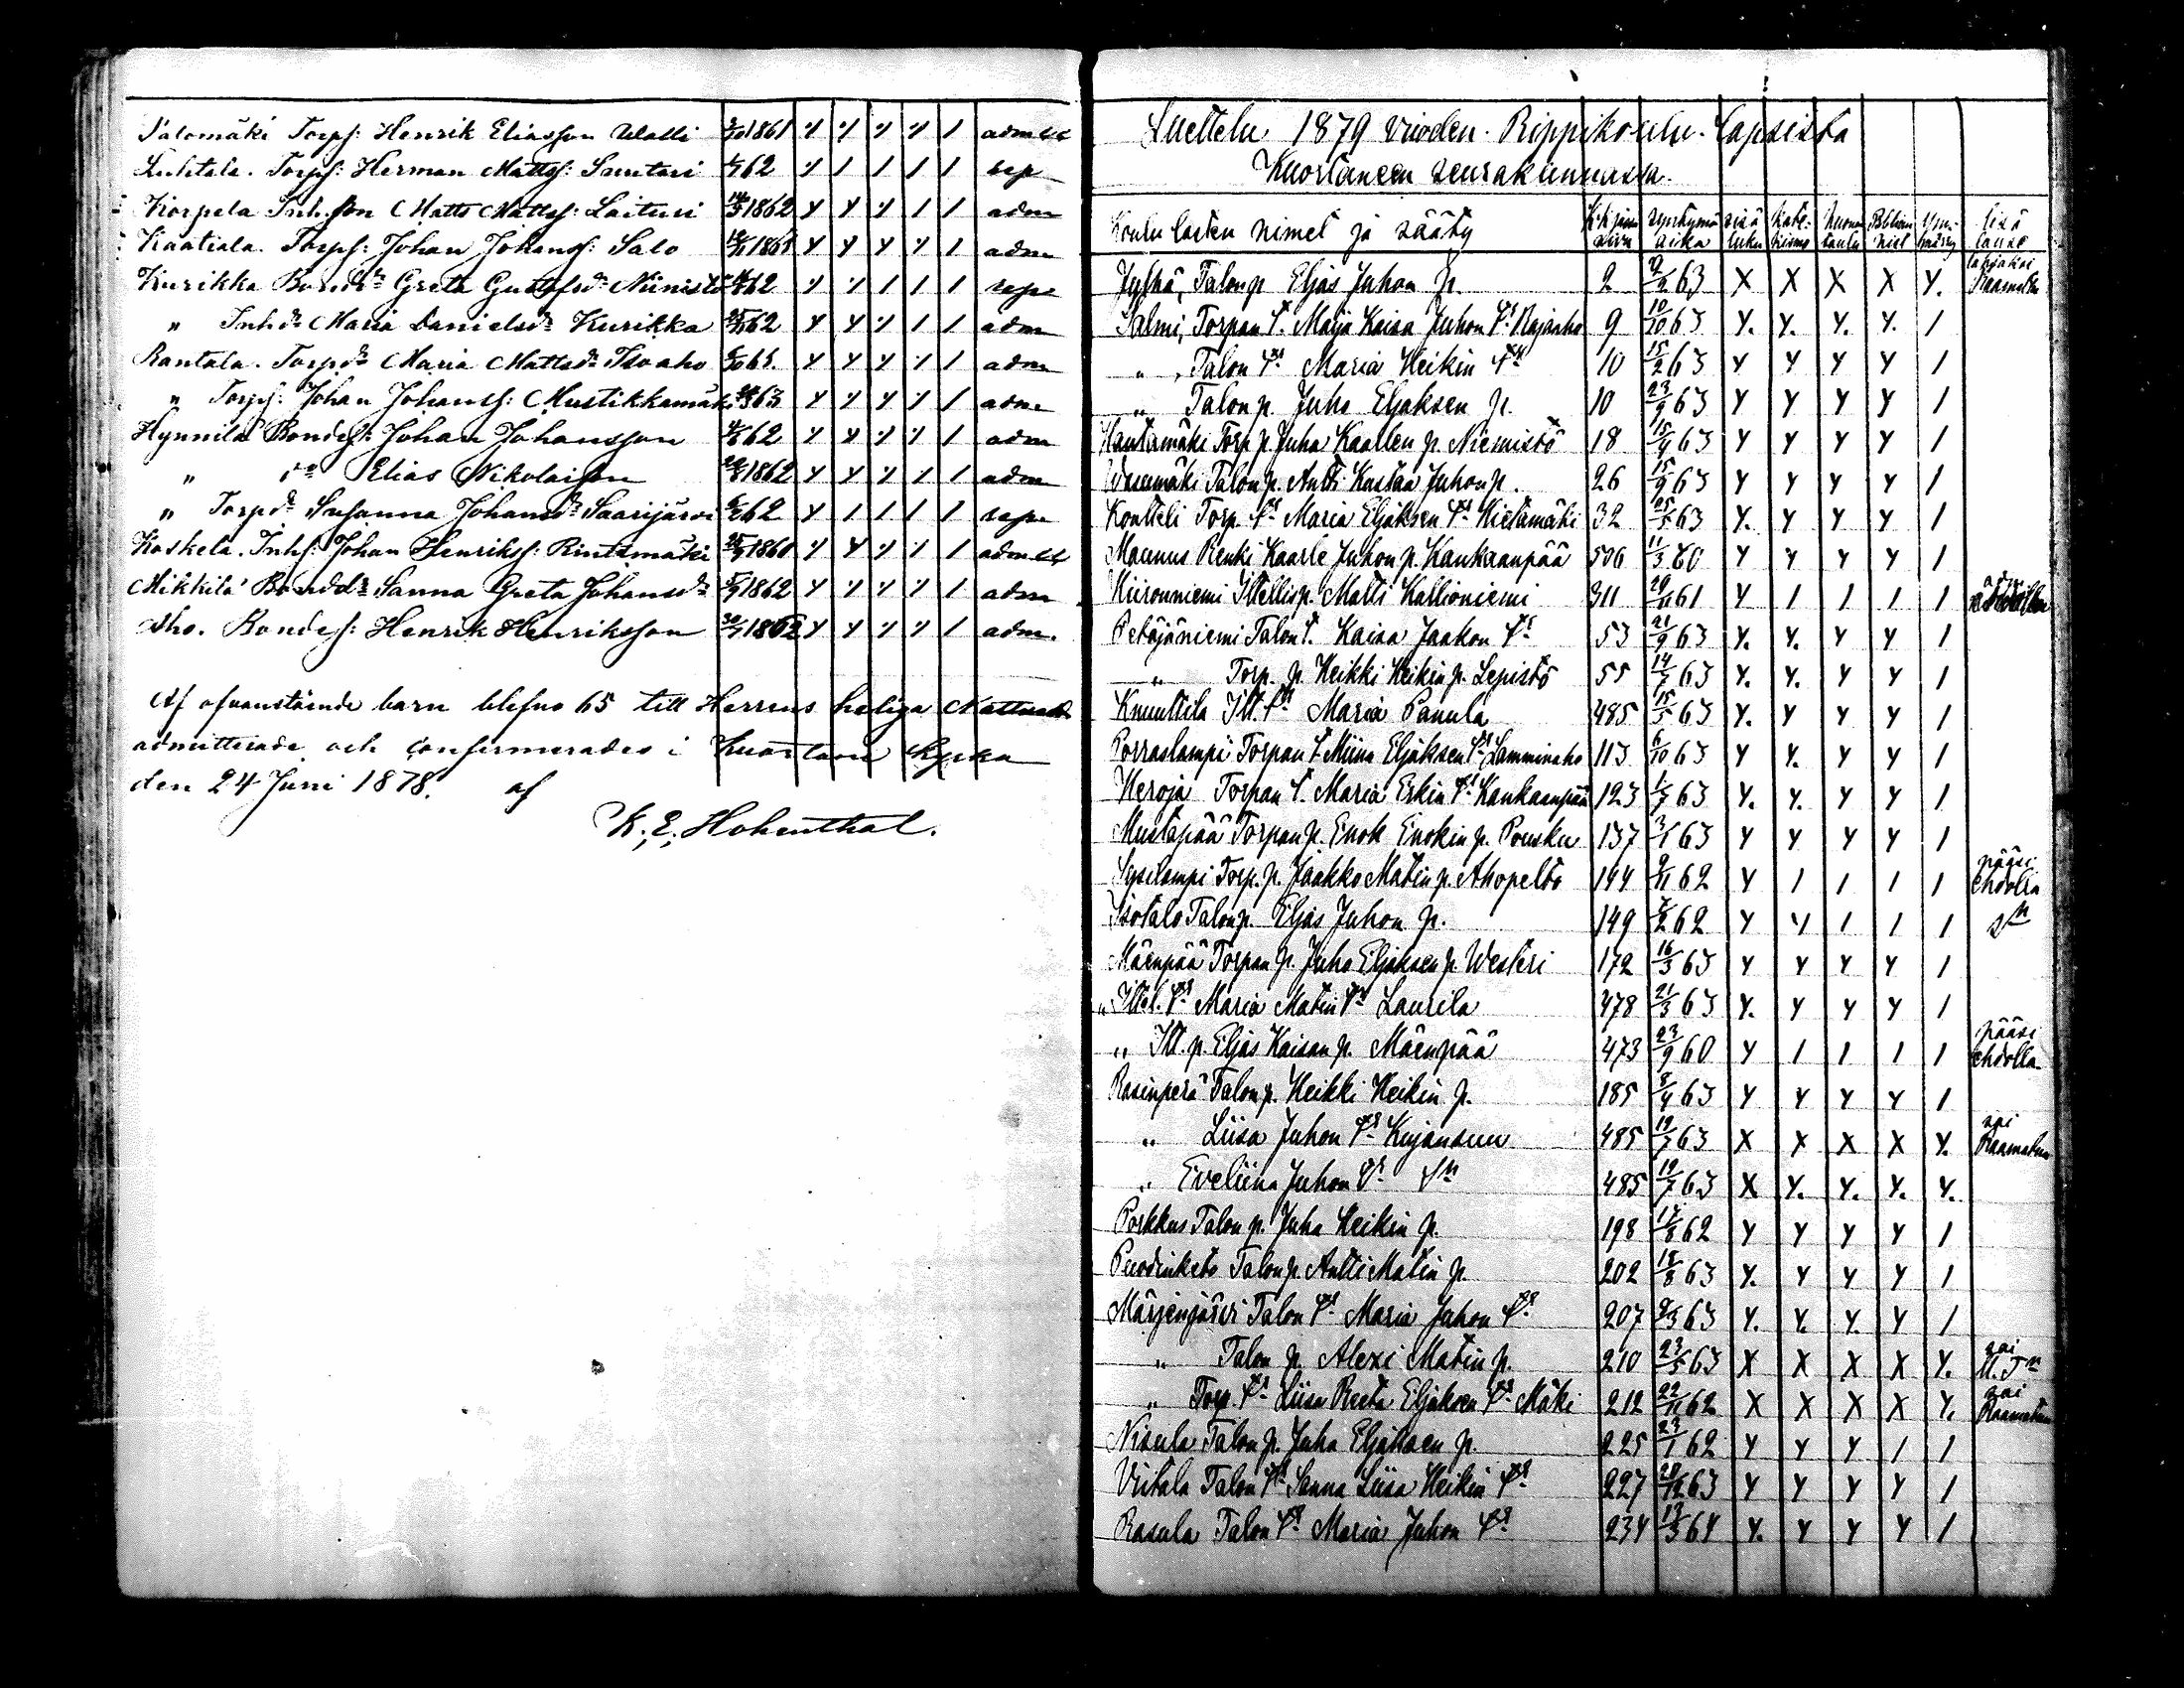 Salomäki Torps: Henrik Eliasson 1861 y y y y / adm
Luhtala. Torps: Herman Mattss: Santari 62 y / / / / rep
Korpela Inh.son Matts Mattss: Laituri 1862 y y y / / adm
Kaatiala. Torps: Johan Johanss: Salo 1861 y y y y / adm
Kurikka Bondd:r Greta Gustafsd:r Niinistö 62 y y / / / rep
" Inhd:r Maria Danielsd:r Kurikka 62 y y y / / adm
Rantala. Torpd:r Maria Mattsd:r Isoaho 63. y y y / / adm
" Torps: Johan Johanss: Mustikkamäki 63 y y y y / adm
Hynnilä Bondes: Johan Johansson 62 y y y / / adm
" d:o Elias Nikolaisson 1862 y y y y / adm
" Torpd:r Susanna Johansd:r Saarijärvi 62 y / / / / rep
Koskela. Inhs: Johan Henrikss: Rintamäki 1860 y y y / /
Mikkilä Bondd:r Sanna Greta Johansd:r 1862 y y y y / adm
Aho. Bondes: Henrik Henriksson 1862 y y y / / adm.
Af ofvanstående barn blefvo 65 till Herrens heliga Nattvard
admitterade och confirmerades i Kuortane kyrka
den 24 Juni 1878. af
K. E. Hohenthal.
Luettelu 1879 vuoden Rippikoulu-lapsista
Kuortaneen seurakunnassa.
Koulu lasten nimet ja sääty sivu syntymä aika sisä luku Kate-kismus Huoneen taulu Ym-märrys lisä lause
Jylhä, Talon p Eljas Juhon p. 2 63 X X X X Y. Raamatun
Salmi, Torpan t. Maija Kaisa Juhon t:r Rajaaho 9 10/10 63 Y. Y. Y. Y. /
" , Talon t:r Maria Heikin t:r 10 15/2 63 Y Y Y Y /
" Talon p. Juho Eljaksen p. 10 23/9 63 Y Y Y Y /
Hantamäki Torp p. Juha Kaarlen p. Niemistö 18 15/4 63 Y Y Y Y /
Talon p. Antti Kustaa Juhon p. 26 15/9 63 Y Y Y Y /
Kontteli Torp. t:r Maria Eljaksen t:r Hietamäki 32 25/5 63 Y. Y Y Y /
Maunus Renki Kaarle Juhon p. Kankaanpää 506 11/3 60 Y Y Y Y /
Kiironniemi Itellis p. Matti Kallioniemi 311 61 Y / / / /
Petäjäniemi Talon t. Kaisa Jaakon t:r 53 21/9 63 Y. Y. Y Y /
" Torp. p. Heikki Heikin p. Lepistö 55 14/7 63 Y. Y. Y Y /
Knuuttila Itt. t:r Maria Panula 485 15/5 63 Y. Y Y Y /
Porraslampi Torpan t. Miina Eljaksen t:r Lamminaho 113 6/10 63 Y Y. Y Y /
Heroja Torpan t. Maria Erkin t:r Kankaanpää 123 1/7 63 Y. Y. Y Y /
Mustapää Torpan p. Enok Enokin p. Pousku 137 3/1 63 Y Y Y Y /
Sysilampi Torp. p. Jaakko Matin p. Ahopelto 144 9/11 62 Y / / / / pääsi ehdolla
Isotalo Talon p. Eljas Juhon p. 149 62 Y Y / / /
Mäenpää Torpan p. Juho Eljaksen p. Westeri 172 16/3 63 Y Y Y Y /
" Ittel. t:r Maria Matin t:r Laurila 478 21/3 63 Y. Y Y Y /
" Itt. p. Eljas Kaisan p. Mäenpää 473 23/9 60 Y / / / / pääsi ehdolla
Rasinperä Talon p. Heikki Heikin p. 185 8/4 63 Y Y Y Y /
" Liisa Juhon t:r Kujansuu 485 19/7 63 X X X X Y. sai Raamatun
" Eveliina Juhon t:r 485 19/7 63 X Y. Y. Y. Y.
Porkkus Talon p. Juha Heikin p. 198 62 Y Y Y Y /
Talon p. Antti Matin p. 202 18/8 63 Y. Y Y Y /
Märjenjärvi Talon t:r Maria Juhon t:r 207 63 Y. Y. Y. Y /
" Talon p. Alexi Matin p. 210 23/5 63 X X X X Y. sai U. T:n
" Torp. t:r Liisa Reeta Eljaksen t:r Mäki 212 22/11 62 X X X X Y. sai Raamatun
Nisula Talon p. Juha Eljaksen p. 225 23/1 62 Y Y Y / /
Viitala Talon t:r Sanna Liisa Heikin t:r 227 20/12 63 Y Y Y Y /
Rasula Talon t:r Maria Juhon t:r 234 13/3 64 Y. Y Y Y /